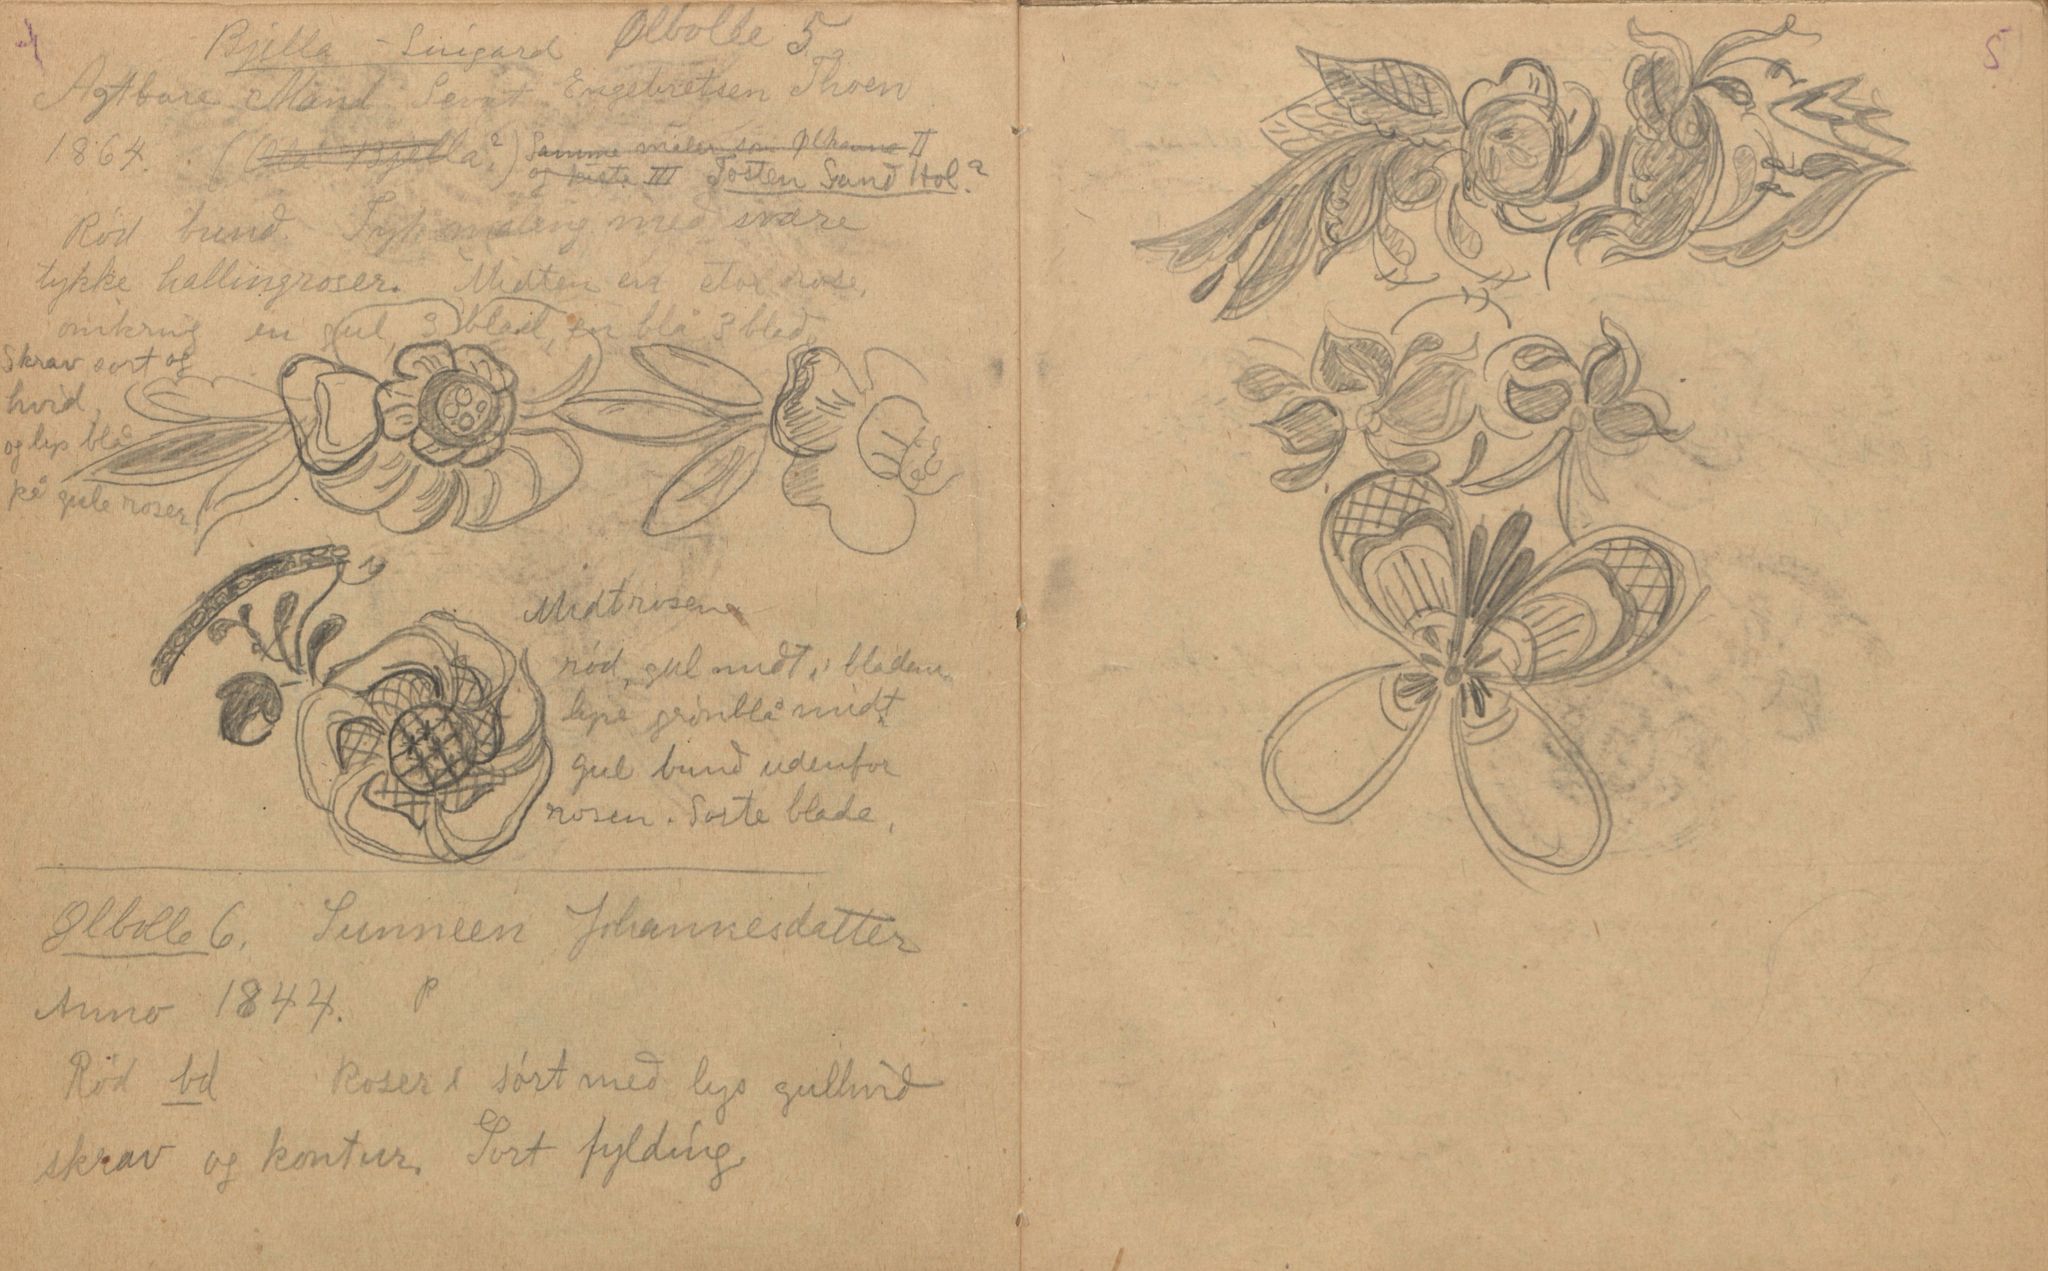 4
Bjella - Ølbolle 5
Agtbare Mand Sevat Engebretsen Thoen
1864. (Ola Bjella?) Samme maler som Ølkanne II
og kiste III Tosten Sand Hol?
Rød bund. Tyk maling med svære
tykke hallingroser. Midten en stor rose,
omkring en gul 3 blad, en blå 3 blad,
Skrav sort og
hvid,
og lys blå
på gule roser
Midtrosen
rød, gul midt, i bladene
lyse grønblå midt,
gul bund udenfor
rosen. Sorte blade,
Ølbolle 6. Sunneen Johannesdatter
Anno 1844. P
Rød bd Roser i sort med lys gulhvid
skrav og kontur. Sort fylding.
5